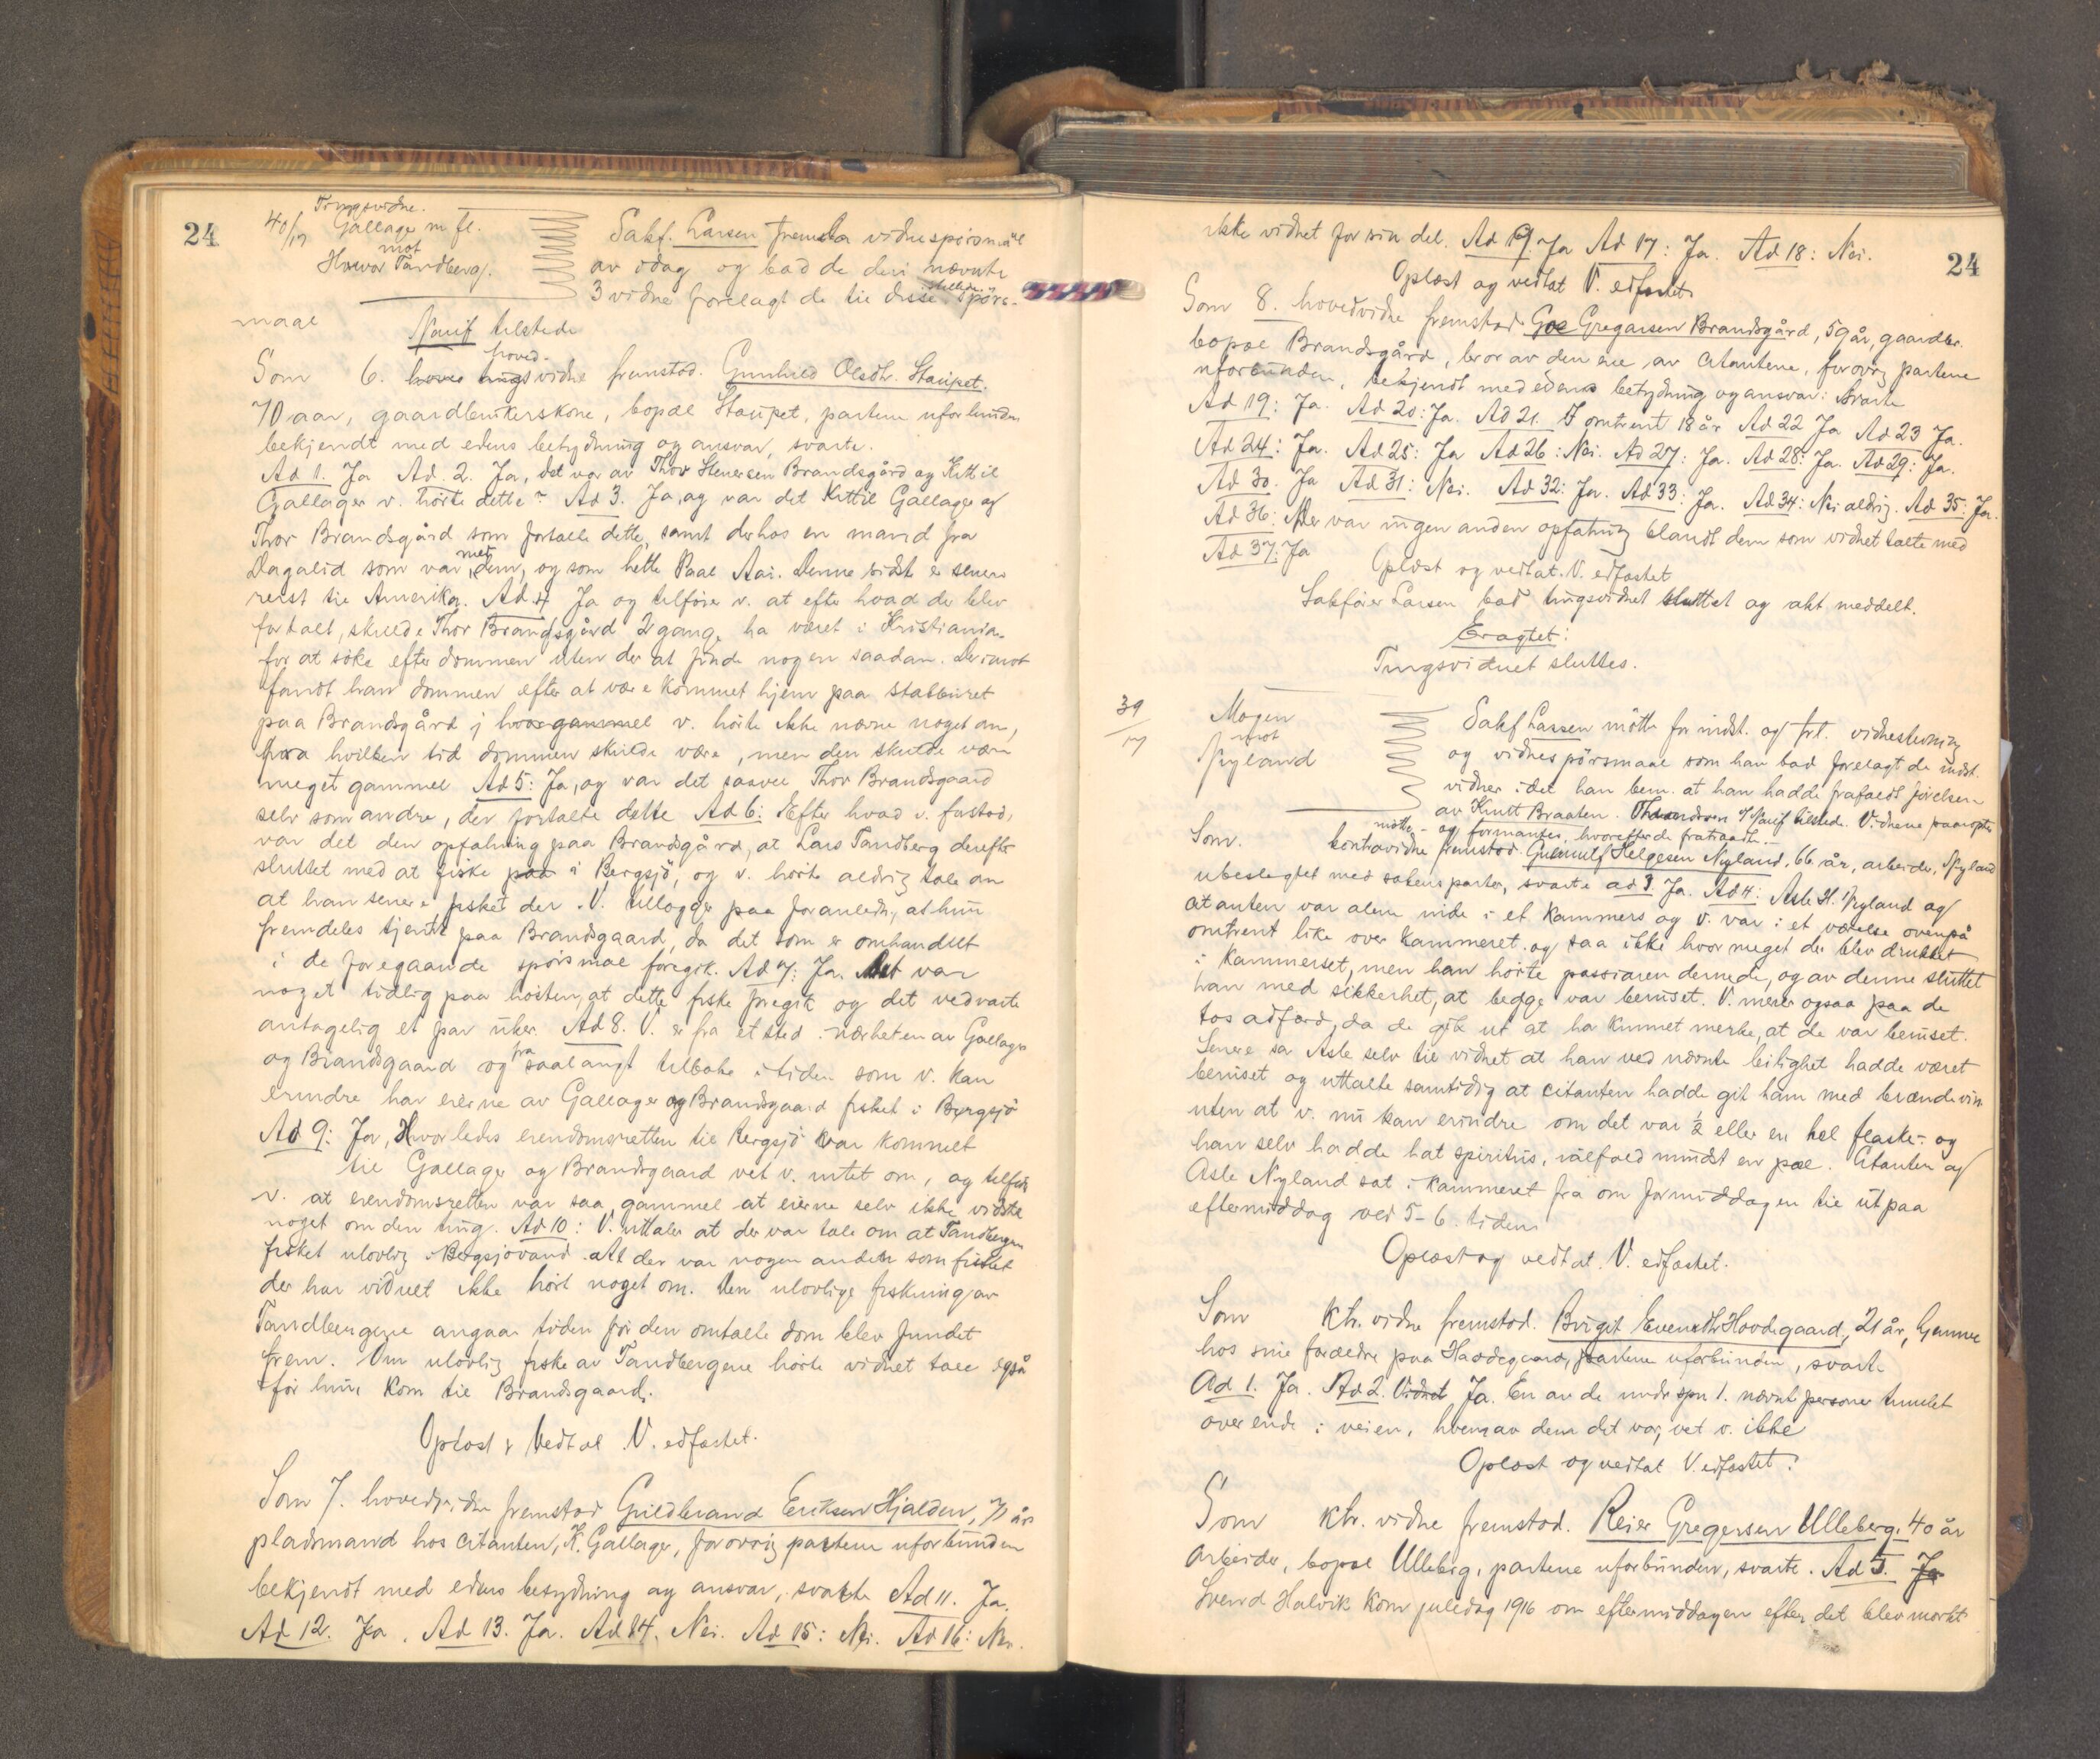 24
40/17 Tingsvidne.
Gallager m fl.
mot
Havor Tandberg.
Sakf. Larsen fremla vidnespörsmål
av idag og bad de deri nævnte
3 vidne forelagt de til disse stillede spörs-
maal
Nauf tilstede
Som 6. hoved- vidne fremstod. Gunhild Olsdtr. Staupet.
70 aar, gaardbrukerskone, bopæl Staupet, partene uforbunden
bekjendt med edens betydning og ansvar, svarte.
Ad 1. Ja Ad. 2. Ja, det var av Thor Stenersen Brandsgård og Kittil
Gallager v. hörte dette. Ad 3. Ja, og var det Kittil Gallager og
Thor Brandsgård som fortalte dette, samt derhos en mand fra
Dagalid som var med dem, og som hette Paal Aai. Denne sidste er senere
reist til Amerika. Ad 4 Ja og tilföier v. at efter hvad der blev
fortalt, skulde Thor Brandsgård 2 gange ha været i Kristiania
for at söke efter dommen uten der at finde nogen saadan. Derimot
fandt han dommen efter at være kommet hjem paa stabburet
paa Brandsgård; hvor gammel v. hörte ikke nævne noget om,
fra hvilken tid dommen skulde være, men den skulde være
meget gammel Ad 5: Ja, og var det saavel Thor Brandsgaard
selv som andre, der fortalte dette Ad 6: Efter hvad v. forstod,
var det den opfatning paa Brandsgård, at Lars Tandberg derefter
sluttet med at fiske paa i Bergsjö, og v. hörte aldrig tale om
at han senere fisket der. V. tillægger paa foranledn, at hun
fremdeles tjente paa Brandsgaard, da det som er omhandlet
i de foregaaende spörsmaal foregik. Ad 7: Ja. Det var
noget tidlig paa hösten, at dette fiske foregik og det vedvarte
antagelig et par uker. Ad 8. V. er fra et sted i nærheten av Gallager
og Brandsgaard og fra saalangt tilbake i tiden som v. kan
erindre har eierne av Gallager og Brandsgaard fisket i Bergsjö
Ad 9: Ja, Hvorledes eiendomsretten til Bergsjö var kommet
til Gallager og Brandsgaard vet v. intet om, og tilföier
v. at eiendomsretten var saa gammel at eierne selv ikke vidste
noget om den ting. Ad 10: V. uttaler at der var tale om at Tandbergene
fisket ulovlig i Bergsjövand. At der var nogen anden som fisket
der har vidnet ikke hört noget om. Den ulovlige fiskning av
Tandbergene angaar tiden för den omtalte dom blev fundet
frem. Om ulovlig fiske av Tandbergene hörte vidnet tale også
för hun kom til Brandsgaard.
Oplæst & Vedtat V. edfæstet.
Som 7. hovedvidne fremstod Guldbrand Eriksen Hjalden, 71 år
pladsmand hos citanten, K. Gallager, forövrig partene uforbunden
bekjendt med edens betydning og ansvar, svarte Ad 11. Ja.
Ad 12. Ja. Ad 13. Ja. Ad 14. Nei. Ad 15: Nei. Ad 16: Nei.
24
ikke vidnet for sin del. Ad 19 Ja Ad 17: Ja. Ad 18: Nei.
Oplæst og vedtat V. edfæstet
Som 8. hovedvidne fremstod Goe Gregarsen Brandsgård, 59 år, gaardbr.
bopæl Brandsgård, bror av den ene av citantene, forövrig partene
uforbunden, bekjendt med edens betydning og ansvar: Svarte
Ad 19: Ja. Ad 20: Ja. Ad 21. I omtrent 18 år Ad 22 Ja Ad 23 Ja.
Ad 24: Ja. Ad 25: Ja Ad 26: Nei. Ad 27: Ja. Ad 28: Ja. Ad 29: Ja.
Ad 30. Ja Ad 31: Nei. Ad 32: Ja. Ad 33: Ja. Ad 34: Nei aldrig. Ad 35: Ja.
Ad 36: Der var ingen anden opfatning blandt dem som vidnet talte med
Ad 37: Ja
Oplæst og vedtat. V. edfæstet
Sakförer Larsen bad tingsvidnet sluttet og akt meddelt.
Eragtet:
Tingsvidnet sluttes.
39/17
Mogen
mot
Nyland
Sakf Larsen mötte for indst. og frl. vidnestevning
og vidnespörsmaal som han bad forelagt de indst.
vidner idet han bem. at han hadde frafaldt förelsen
av Knut Braaten. Nauf tilstede. Vidnene paaropte
mötte - og formantes, hvorefter de fratraadte. -
Som. kontravidne fremstod. Gunnulf Helgesen Nyland, 66 år, arbeider, Nyland
ubeslegtet med sakens parter, svarte ad 3. Ja. Ad 4: Asle H. Nyland og
citanten var alene inde i et kammers og v. var i et værelse ovenpå
omtrent like over kammeret og saa ikke hvor meget der blev drukket
i kammerset, men han hörte passiaren dernede, og av denne sluttet
han med sikkerhet, at begge var beruset. V. mener ogsaa paa de
tos adfærd, da de gik ut at ha kunnet merke, at de var beruset.
Senere sa Asle selv til vidnet at han ved nævnte leilighet hadde været
beruset og uttalte samtidig at citanten hadde git ham med brændevin
uten at v. nu kan erindre om det var ½ eller en hel flaske. og
han selv hadde hat spiritus, ialfald mindst en pæl. Citanten og
Asle Nyland sat i kammeret fra om formiddagen til utpaa
eftermiddag ved 5-6. tiden
Oplæst og vedtat. V. edfæstet.
Som ktr. vidne fremstod. Birgit Evensdtr Hovdegaard, 21 år, hjemme
hos sine forældre paa Hovdegaard, partene uforbunden, svarte
Ad 1. Ja. Ad 2. Vidnet Ja. En av de under spm 1. nævnte personer tumlet
over ende i veien, hvem av dem det var, vet v. ikke
Oplæst og vedtat V. edfæstet.
Som ktr. vidne fremstod. Reier Gregersen Ulleberg, 40 år
arbeider, bopæl Ulleberg, partene uforbunden, svarte. Ad 5. Ja
Svend Halvik kom juledag 1916 om eftermiddagen efter det blev mörkt